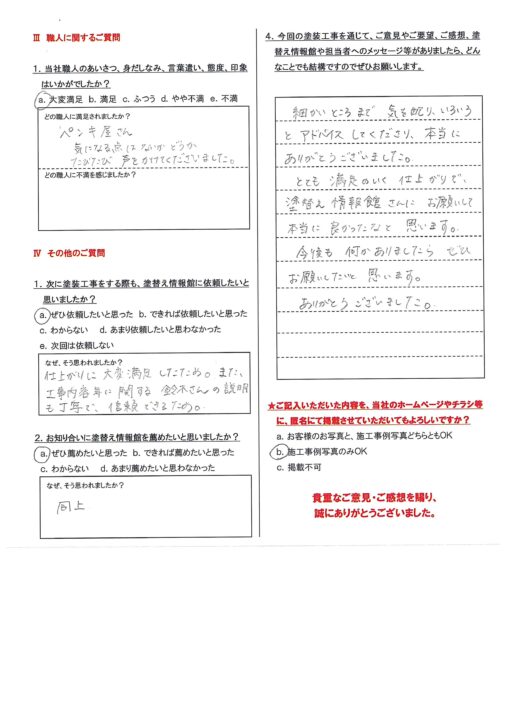 Ⅲ 職人に関するご質問
1. 当社職人のあいさつ、身だしなみ、言葉遣い、態度、印象
はいかがでしたか？
a. 大変満足 b. 満足 c. ふつう d. やや不満 e. 不満
どの職人に満足されましたか？
ペンキ屋さん
気になる点はないかどうか
たびたび声をかけてくださいました。
どの職人に不満を感じましたか？
Ⅳ その他のご質問
1. 次に塗装工事をする際も、塗替え情報館に依頼したいと
思いましたか？
a. ぜひ依頼したいと思った b. できれば依頼したいと思った
c. わからない d. あまり依頼したいと思わなかった
e. 次回は依頼しない
なぜ、そう思われましたか？
仕上がりに大変満足したため。また、
工事内容等に関する鈴木さんの説明
も丁寧で、信頼できるため。
2. お知り合いに塗替え情報館を薦めたいと思いましたか？
a. ぜひ薦めたいと思った b. できれば薦めたいと思った
c. わからない d. あまり薦めたいと思わなかった
なぜ、そう思われましたか？
同上
4. 今回の塗装工事を通じて、ご意見やご要望、ご感想、塗
替え情報館や担当者へのメッセージ等がありましたら、どん
なことでも結構ですのでぜひお願いします。
細かいところまで気を配り、いろいろ
とアドバイスしてくださり、本当に
ありがとうございました。
とても満足のいく仕上がりで、
塗替え情報館さんにお願いして
本当に良かったなと思います。
今後も何かありましたらぜひ
お願いしたいと思います。
ありがとうございました。
★ご記入いただいた内容を、当社のホームページやチラシ等
に、匿名にて掲載させていただいてもよろしいですか？
a. お客様のお写真と、施工事例写真どちらともOK
b. 施工事例写真のみOK
c. 掲載不可
貴重なご意見・ご感想を賜り、
誠にありがとうございました。